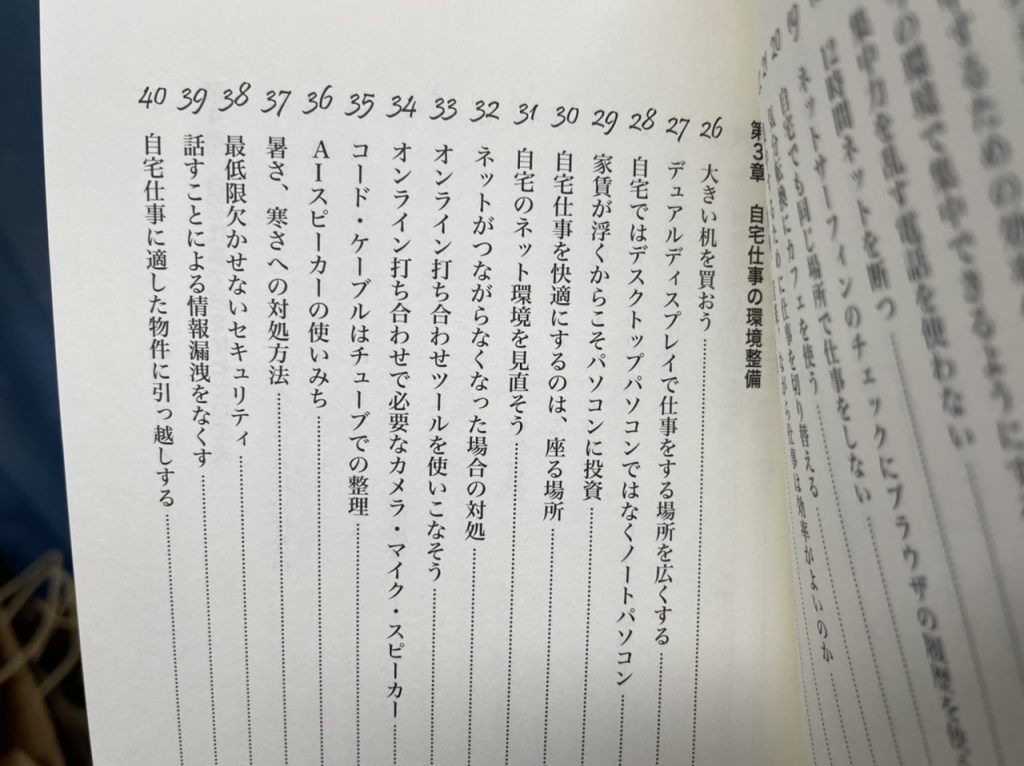 19
20
21
集中力を乱す電話を使わない
12時間ネットを断つ
ネットサーフィンのチェックにブラウザの履歴を
自宅でも同じ場所で仕事をしない
気分転換にカフェを使う
第3章 自宅仕事の環境整備
26 大きい机を買おう
27 デュアルディスプレイで仕事をする場所を広くする
28 自宅ではデスクトップパソコンではなくノートパソコン
29 家賃が浮くからこそパソコンに投資
30 自宅仕事を快適にするのは、座る場所
31 自宅のネット環境を見直そう
32 ネットがつながらなくなった場合の対処
33 オンライン打ち合わせツールを使いこなそう
34 オンライン打ち合わせで必要なカメラ・マイク・スピーカー
35 コード・ケーブルはチューブでの整理
36 AIスピーカーの使いみち
37 暑さ、寒さへの対処方法
38 最低限欠かせないセキュリティ
39 話すことによる情報漏洩をなくす
40 自宅仕事に適した物件に引っ越しする